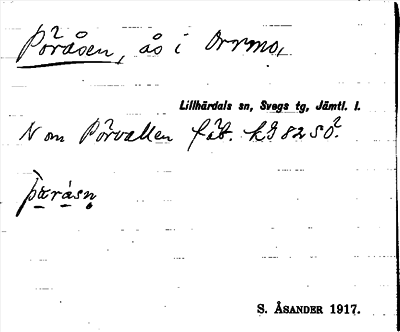 Pöråsen, ås i Orrmo,
Lillhärdals sn, Svegs tg, Jämtl. l.
N om Pörvallen fäb.
S. ÅSANDER 1917.